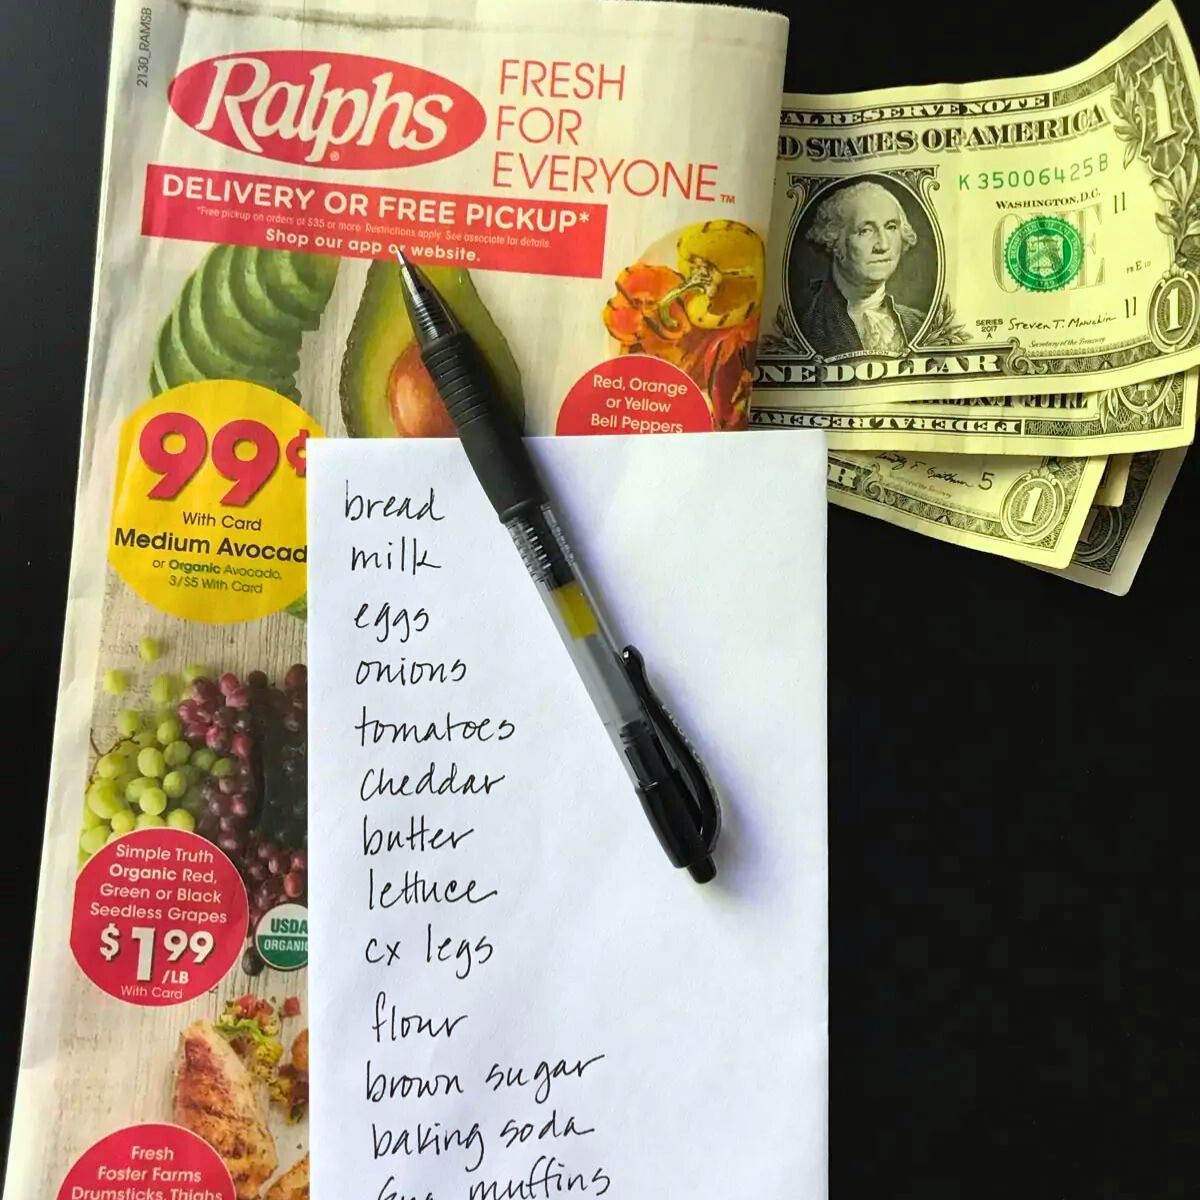 2130_RAMSB
Ralphs
FRESH
FOR
EVERYONE™
DELIVERY OR FREE PICKUP*
*Free pickup on orders of $35 or more. Restrictions apply. See associate for details.
Shop our app or website.
Red, Orange
or Yellow
Bell Peppers
99¢
With Card
Medium Avocad
or Organic Avocado,
3/$5 With Card
Simple Truth
Organic Red,
Green or Black
Seedless Grapes
$1.99
/LB
With Card
USDA
ORGANIC
Fresh
Foster Farms
Drumsticks, Thighs
bread
milk
eggs
onions
tomatoes
cheddar
butter
lettuce
cx legs
flour
brown sugar
baking soda
muffins
AL RESERVE NOTE
D STATES OF AMERICA
K 35006425 B
WASHINGTON, D.C.
11
SERIES
2017
A
Steven T. Mnuchin
Secretary of the Treasury
11
WASHINGTON
ONE DOLLAR
1
1
FEDERAL RESERVE
5
1